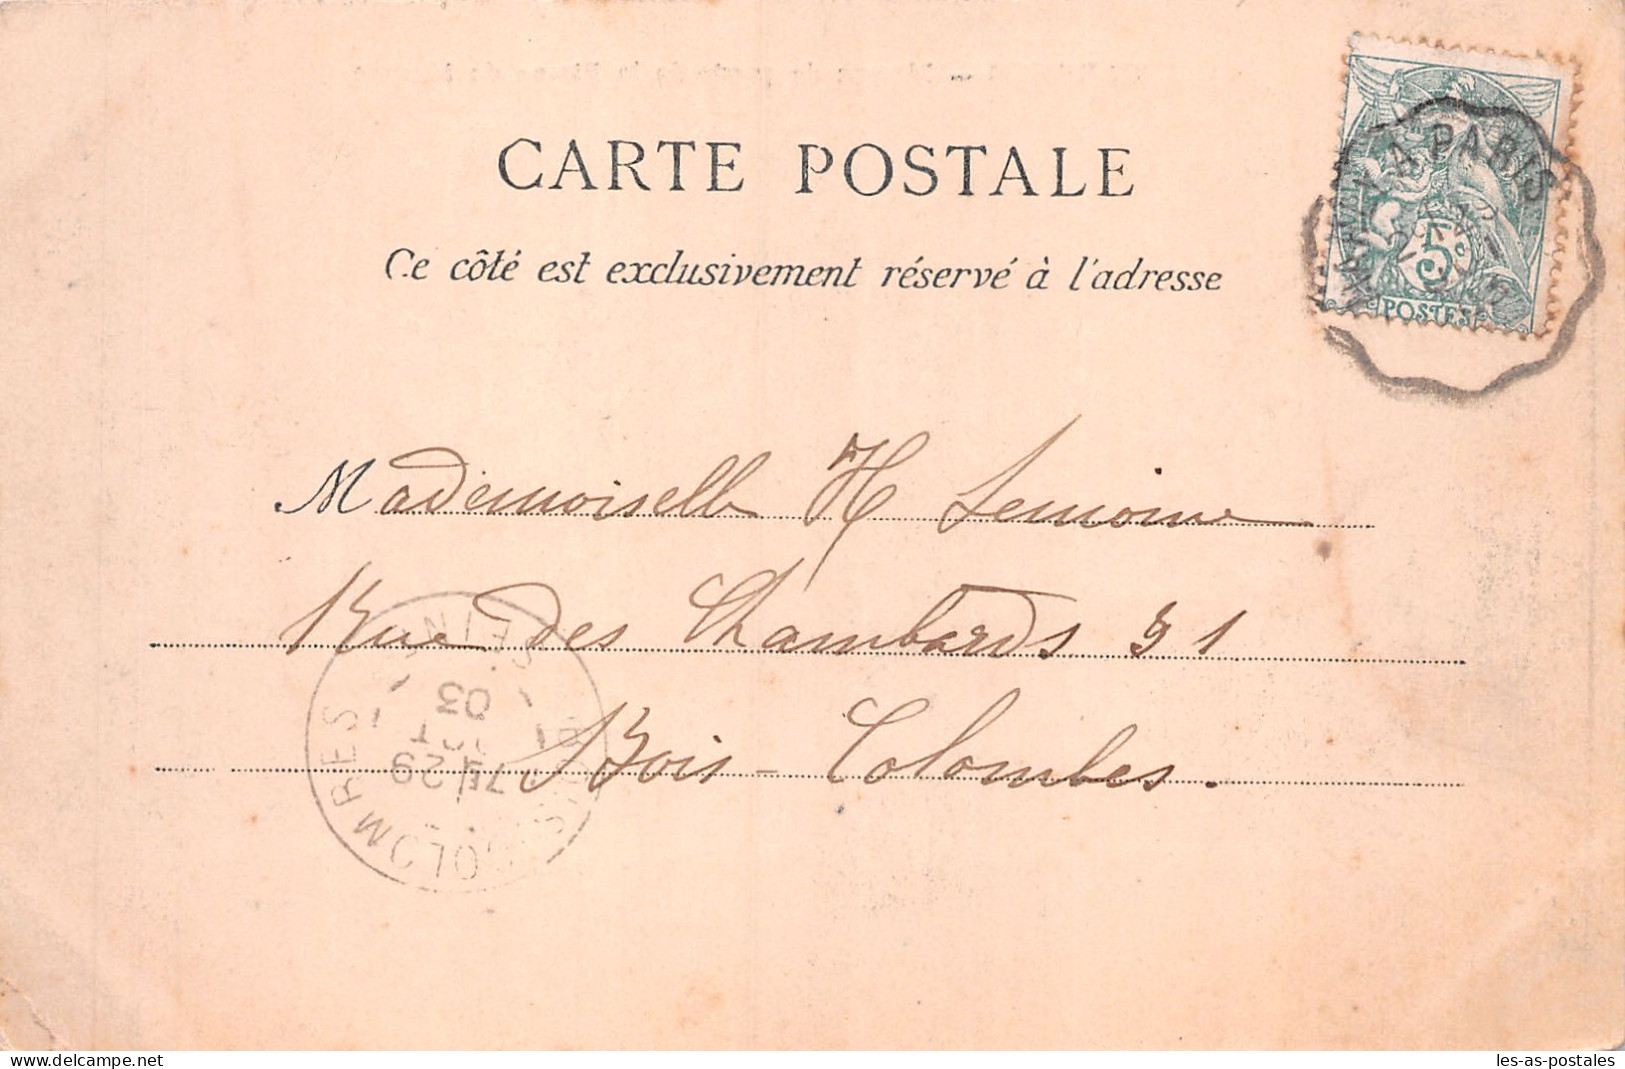 CARTE POSTALE
Ce côté est exclusivement réservé à l'adresse
A PARIS
5c
POSTES
Mademoiselle H Lemoine
Rue des Chambards 31
Bois-Colombes.
COLOMBES
SEINE
7E 29
OCT
03
delcampe.net
les-as-postales